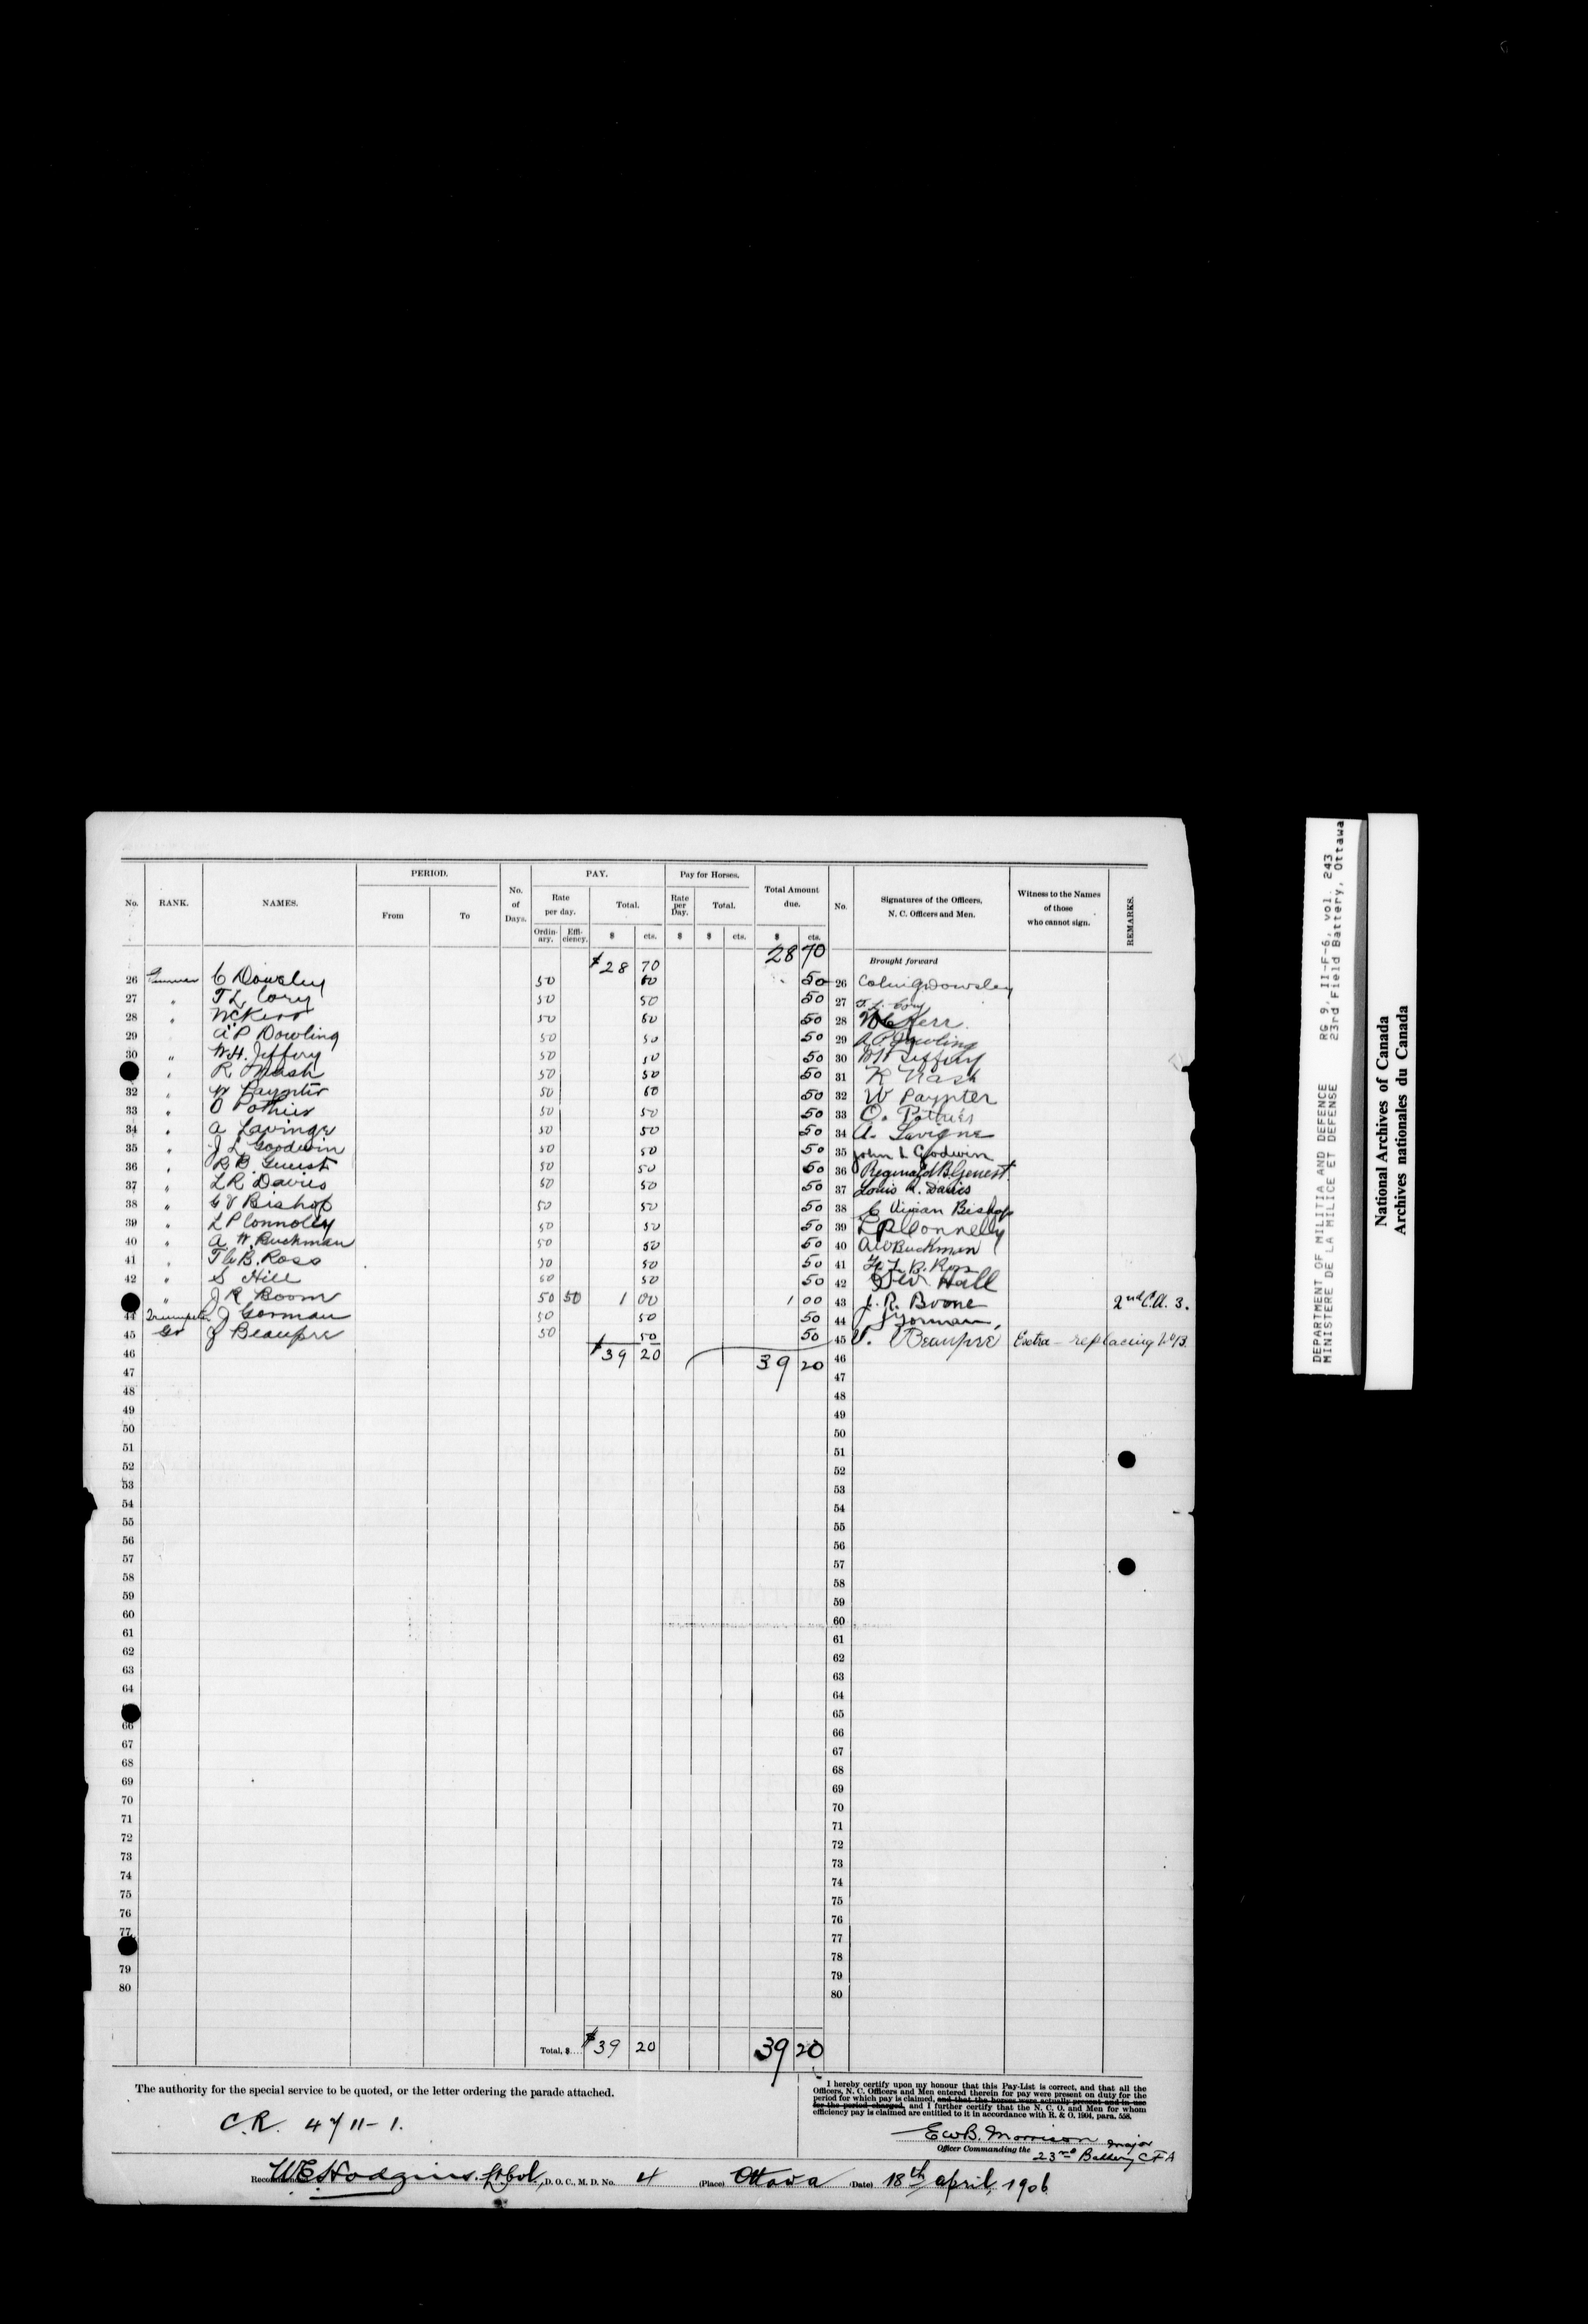 No. RANK. NAMES. PERIOD. From To No. of Days. PAY. Rate per day. Ordinary. Efficiency. Total. $ cts. Pay for Horses. Rate per Day. $ Total. $ cts. Total Amount due. $ cts. No. Signatures of the Officers, N. C. Officers and Men. Witness to the Names of those who cannot sign. REMARKS.
$28 70 28 70 Brought forward
26 Gunner C Dowsley 50 50 50 26 Colin G Dowsley
27 " T L Cory 50 50 50 27 T. L. Cory
28 " W C Kerr 50 50 50 28 W C Kerr.
29 " A P Dowling 50 50 50 29 A P Dowling
30 " W H. Jeffery 50 50 50 30 W H Jeffery
" R. Nash 50 50 50 31 R Nash
32 " W Paynter 50 50 50 32 W Paynter
33 " O Pothier 50 50 50 33 O. Pothier
34 " A Lavinge 50 50 50 34 A. Lavigne
35 " J L Goodwin 50 50 50 35 John L Goodwin
36 " R B. Guest 50 50 50 36 Reginald B. Genest.
37 " L R Davies 50 50 50 37 Louis R. Davies
38 " C V Bishop 50 50 50 38 C Vivian Bishop
39 " L P Connolly 50 50 50 39 L P Connelly
40 " A W. Buckman 50 50 50 40 A W Buckman
41 " B. Ross 50 50 50 41 B. Ross
42 " S Hill 50 50 50 42 Hall
" J R Boom 50 50 1 00 1 00 43 J. R. Boone 2nd C.A. 3.
44 Trumpeter J Gorman 50 50 50 44 J Gorman,
45 Gr J Beaupre 50 50 50 45 Beaupre Extra - replacing No 13
46 $39 20 39 20 46
47 47
48 48
49 49
50 50
51 51
52 52
53 53
54 54
55 55
56 56
57 57
58 58
59 59
60 60
61 61
62 62
63 63
64 64
65
66 66
67 67
68 68
69 69
70 70
71 71
72 72
73 73
74 74
75 75
76 76
77 77
78
79 79
80 80
Total, $.... $39 20 39 20
The authority for the special service to be quoted, or the letter ordering the parade attached.
C.R. 4711-1.
I hereby certify upon my honour that this Pay-List is correct, and that all the
Officers, N. C. Officers and Men entered therein for pay were present on duty for the
period for which pay is claimed, and that the horses were actually present and in use
for the period charged, and I further certify that the N. C. O. and Men for whom
efficiency pay is claimed are entitled to it in accordance with R. & O. 1904, para. 558.
E W B. Morrison Major
Officer Commanding the 23rd Battery CFA
W E Hodgins. Lt Col, D. O. C., M. D. No. 4 (Place) Ottawa (Date) 18th April, 1906
DEPARTMENT OF MILITIA AND DEFENCE RG 9, II-F-6, vol. 243
MINISTERE DE LA MILICE ET DEFENSE 23rd Field Battery, Ottawa
National Archives of Canada
Archives nationales du Canada